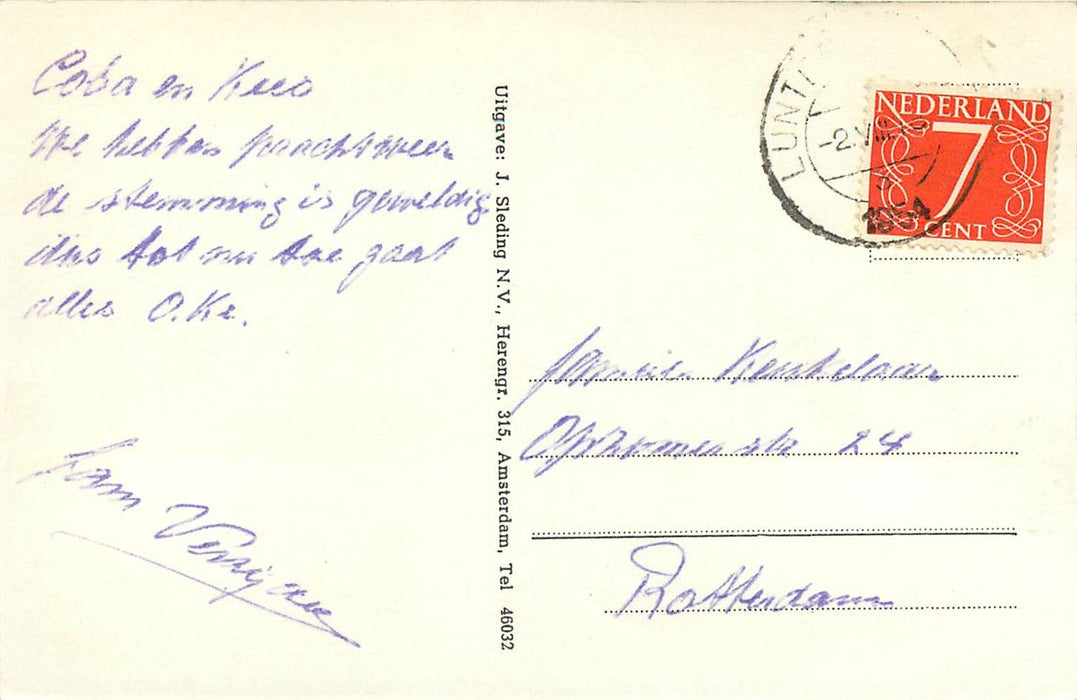 Coba en Kees
We hebben prachtweer
de stemming is geweldig
dus tot nu toe gaat
alles O.Ke.
Fam
Uitgave: J. Sleding N.V., Herengr. 315, Amsterdam, Tel 46032
LUNT
-2.VIII
1954
NEDERLAND
7
CENT
familie
24
Rotterdam